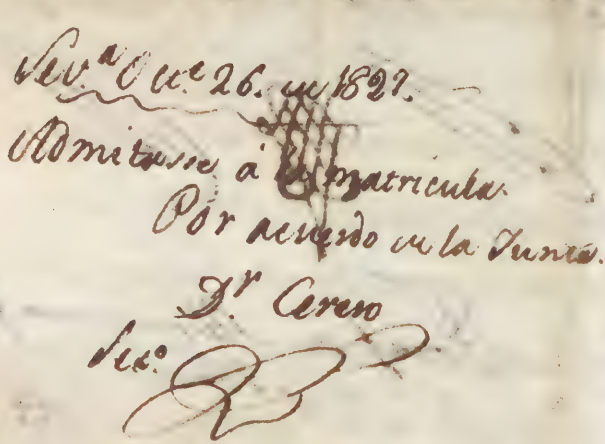 Sev.ª Oct.e 26. de 1827.
Admitasse á la matricula.
Por acuerdo de la Junta.
D.r Cerero
Sec.º